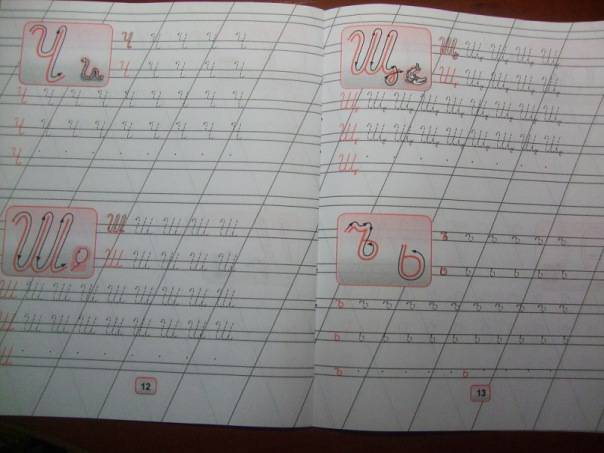 Ч
Ч Ч Ч Ч Ч
Ч Ч Ч Ч Ч
Ч Ч Ч Ч Ч Ч Ч Ч Ч
Ч Ч Ч Ч Ч Ч Ч Ч Ч
Ч
Ш
Ш Ш Ш Ш Ш
Ш Ш Ш Ш Ш
Ш Ш Ш Ш Ш Ш Ш Ш
Ш Ш Ш Ш Ш Ш Ш Ш
Ш
12
Щ
Щ Щ Щ Щ Щ
Щ Щ Щ Щ Щ
Щ Щ Щ Щ Щ Щ Щ Щ Щ
Щ Щ Щ Щ Щ Щ Щ Щ Щ
Щ
ъ ь
ъ ъ ъ ъ ъ ъ
ь ь ь ь ь ь
ъ ъ ъ ъ ъ ъ ъ ъ ъ ъ
ь ь ь ь ь ь ь ь ь ь ь
ъ ь
13